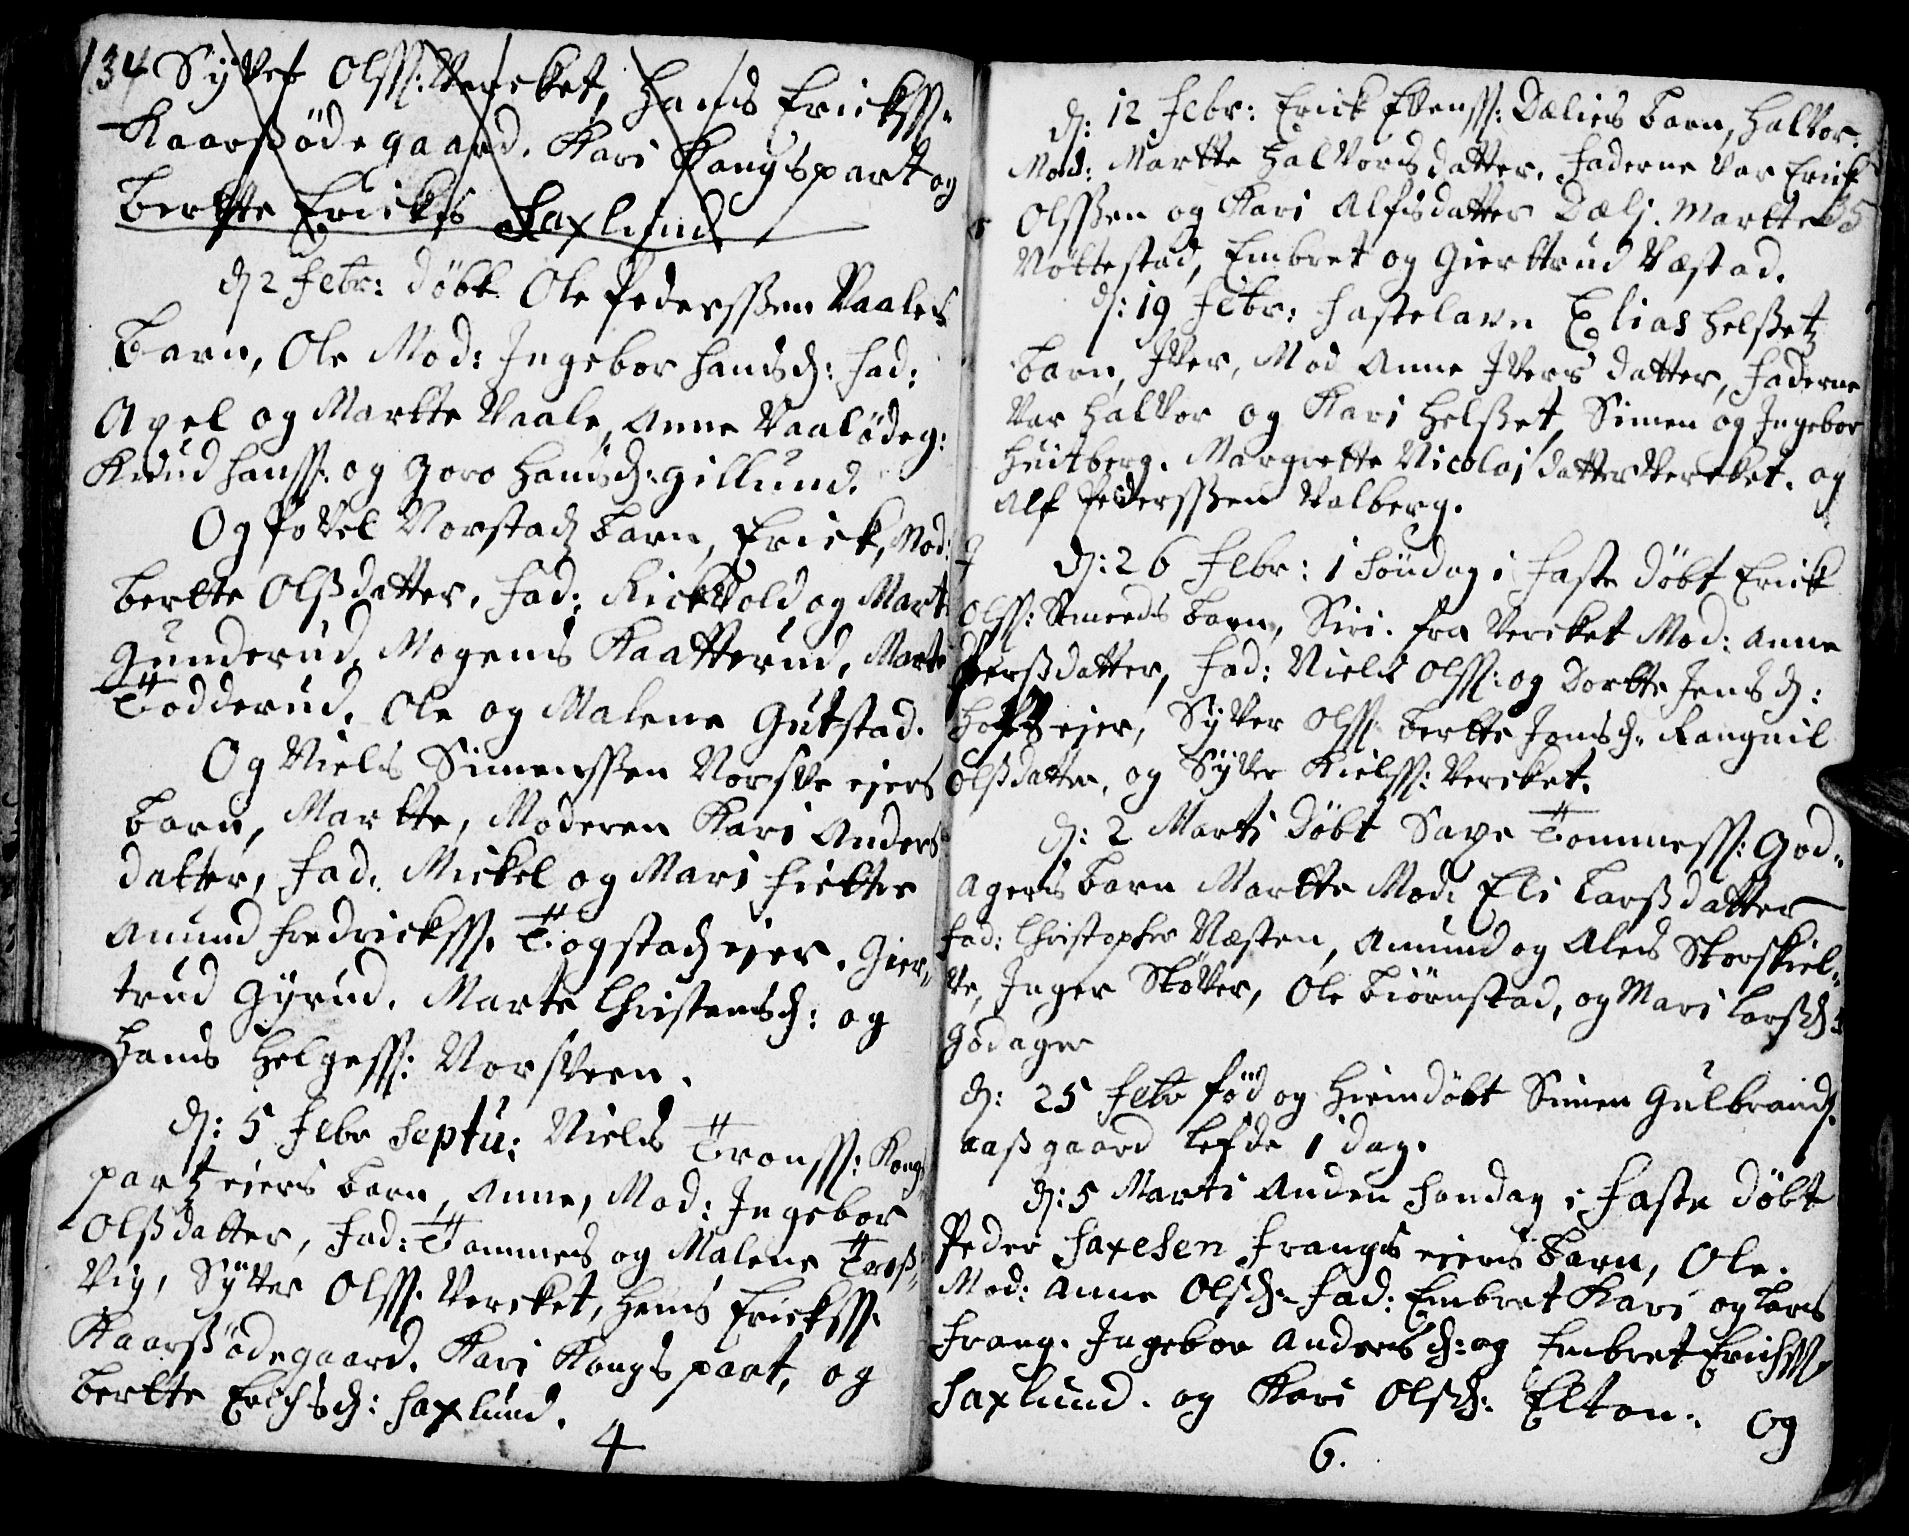 134 Syver Olss: Vercket, Hans Erickss:
Kaarßödegaard. Kari Kongspart og
Berthe Ericks Saxlund
d 2 Febr: döbt Ole Pederssen Vaales
Barn, Ole Mod: Ingebor Hansd: Fad:
Axel og Marthe Vaale, Anne Vaalödeg:
Knud Hanss: og Goro Hansd: Gillund.
Og Povel Norstad barn, Erick, Mod:
Berthe Olßdatter, Fad: Rickvold og Mart
Gunderud, Mogens Kaatterud, Marte
Todderud, Ole og Malene Gutstad.
Og Niels Simenssen Norsve ejers
Barn, Marthe, Moderen Kari Anders
datter, Fad: Mickel og Mari
Amund Fredrickss: Togstad ejer. Gier-
trud Gyrud. Marte Christensd: og
Hans Helgess: Norsveen.
d: 5 Febr Septu: Niels Tronss: Kongs
partz ejers barn, Anne, Mod: Ingebor
Olßdatter, Fad: Tommes og Malene Troß-
vig, Syver Olss: Vercket, Hans Erickss:
Kaarßödegaard. Kari Kongspart, og
Berthe Erichsd: Saxlund.
4
d: 12 Febr: Erick Ebenss: Dælies barn, Halvor.
Mod: Marthe Halvordsdatter. Faderne var Erick
Olssen og Kari Alfsdatter Dæli. Marthe
Nöttestad, Embret og Gierttrud Væstad.
d: 19 Febr: Fastelavn Elias Helßetz
barn, Iver, Mod Anne Ivers datter, Faderne
var Halvor og Kari Helßet, Simen og Ingebor
Huitberg. Margrette Nicolaidatter Vercket. og
Alf Pederssen Valberg.
d: 26 Febr: 1 Söndag i Faste döbt Erick
Olss: Smeds barn, Siri. fra Vercket Mod: Anne
Persdatter, Fad: Niels Olss: og Dorthe Jensd:
ejer, Syver Olss: Berthe Jonsd: Rangnil
Olßdatter, og Syver Kielss: Vercket.
d: 2 Marti döbt Saxe Tommess: God-
agers barn Marthe Mod: Eli Larßdatter
Fad: Christopher Næsten, Amund og Ales Storskiel-
ve, Inger Stöver, Ole Biörnstad, og Mari Larsd:
Godager
d: 25 Febr föd og Hiemdöbt Simen Gulbrands
aaßgaard lefde 1 dag.
d: 5 Marti Anden Sondag i Faste döbt
Peder Saxesen Frangs ejers Barn, Ole.
Mod: Anne Olsd: Fad: Embret Kari og Lars
Frang. Ingebor Andersd: og Embret Erichss:
Saxlund. og Kari Olsd: Elton: og
6.